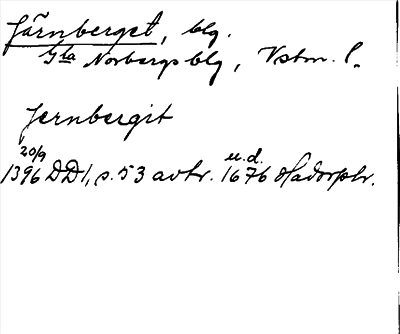 Järnberget, blg.
Gla Norbergs blg, Vstm. l.
Jernbergit
20/9 u.d.
1396 DD1, s. 53 avtr. 1676 Hadorph.